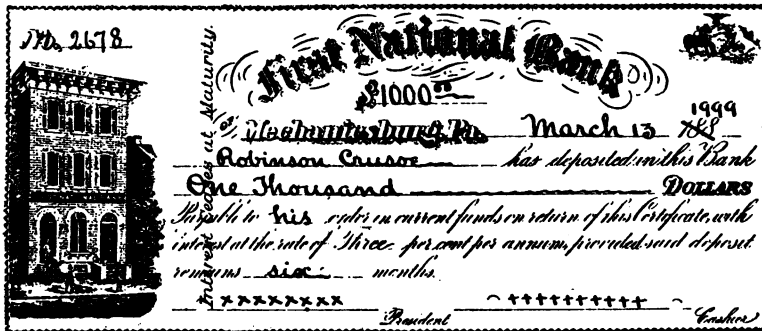 No. 2678
First National Bank
$1000.00
of Mechanicsburg, Pa. March 13 1999 188
Robinson Crusoe has deposited in this Bank
One Thousand DOLLARS
Payable to his order in current funds on return of this Certificate, with
interest at the rate of Three per cent per annum, provided said deposit
remains six months.
xxxxxxxxx ++++++++++
President Cashier
Interest ceases at Maturity.